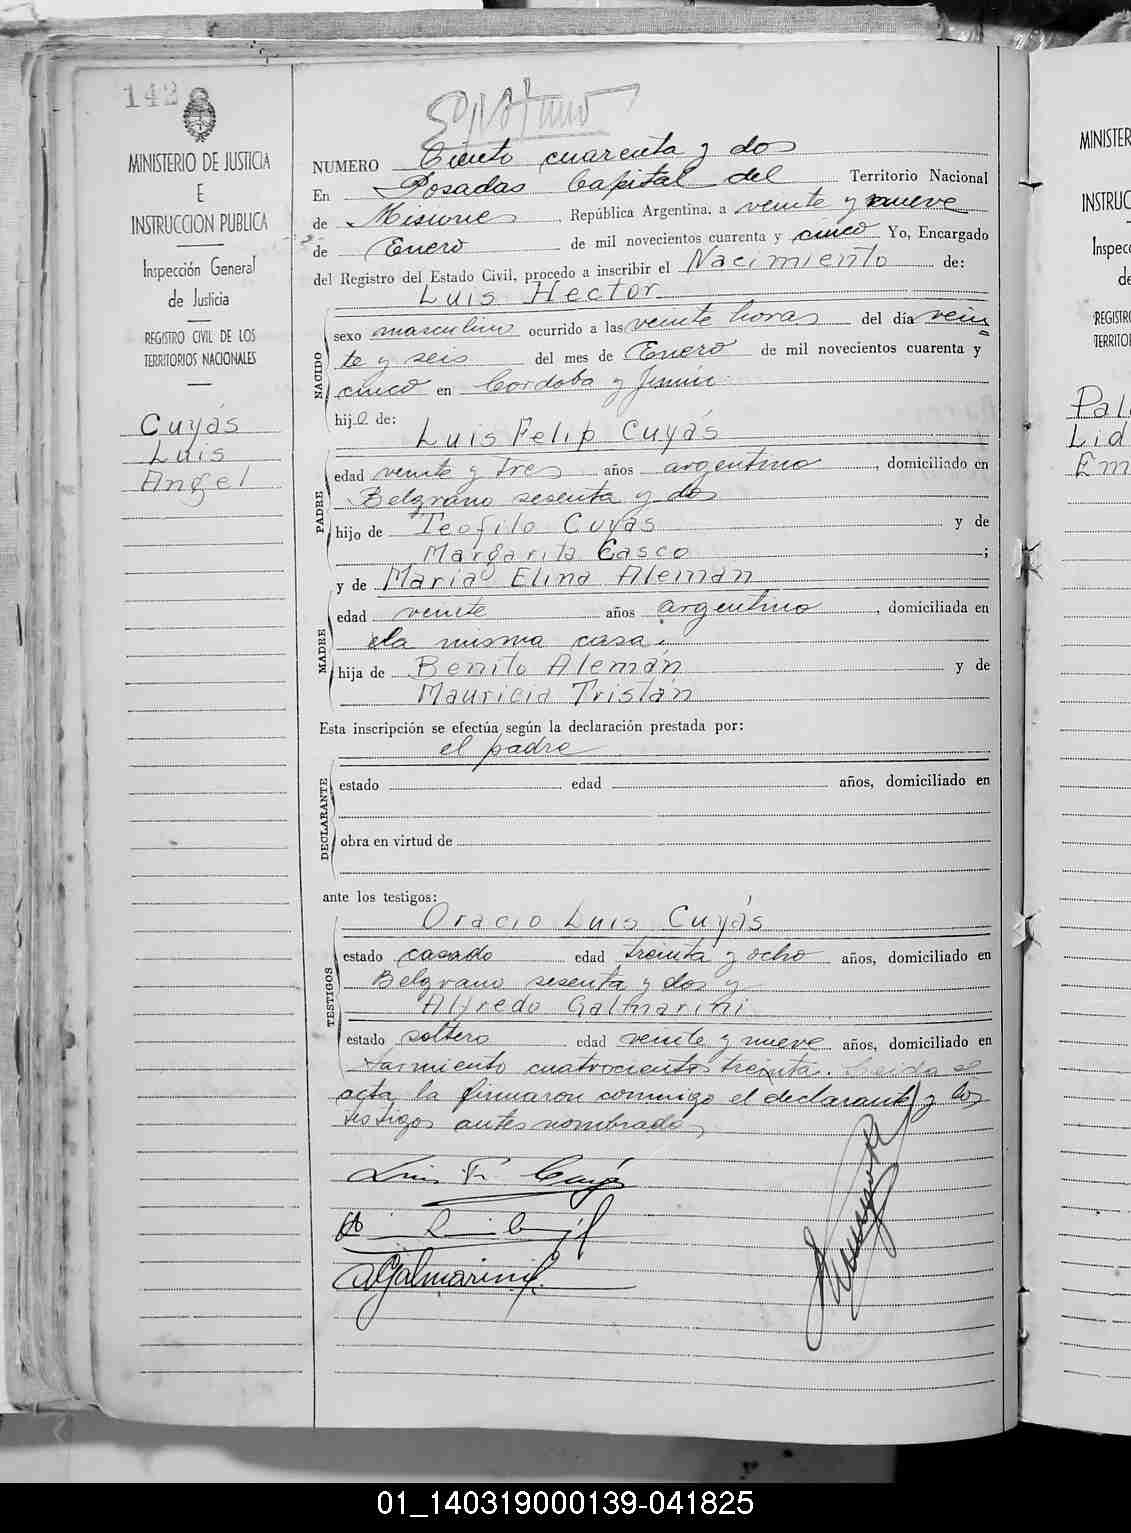 142
MINISTERIO DE JUSTICIA
E
INSTRUCCION PUBLICA
Inspección General
de Justicia
REGISTRO CIVIL DE LOS
TERRITORIOS NACIONALES
Cuyás
Luis
Angel
NUMERO Ciento cuarenta y dos
En Posadas Capital del Territorio Nacional
de Misiones, República Argentina, a veinte y nueve
de Enero de mil novecientos cuarenta y cinco Yo, Encargado
del Registro del Estado Civil, procedo a inscribir el Nacimiento de:
Luis Hector
NACIDO
sexo masculino ocurrido a las veinte horas del día vein=
te y seis del mes de Enero de mil novecientos cuarenta y
cinco en Cordoba y Junin.
hijo de:
Luis Felip Cuyás
PADRE
edad veinte y tres años argentino, domiciliado en
Belgrano sesenta y dos
hijo de Teofilo Cuyás y de
Margarita Casco;
y de Maria Elina Alemán
MADRE
edad veinte años argentina, domiciliada en
la misma casa.
hija de Benito Alemán y de
Mauricia Tristán
Esta inscripción se efectúa según la declaración prestada por:
el padre
DECLARANTE
estado edad años, domiciliado en
obra en virtud de
ante los testigos:
Oracio Luis Cuyás
TESTIGOS
estado casado edad treinta y ocho años, domiciliado en
Belgrano sesenta y dos y
Alfredo Galmarini
estado soltero edad veinte y nueve años, domiciliado en
Sarmiento cuatrocientos treinta. Leida el
acta, la firmaron conmigo el declarante y los
testigos antes nombrados
Luis F. Cuyás
AGalmarini
MINISTER
INSTRUC
Inspec
de
REGISTR
TERRITO
Pal
Lid
Em
01_140319000139-041825